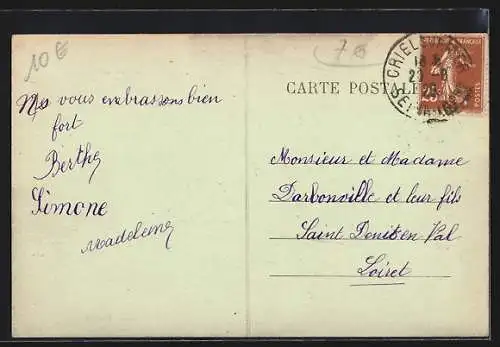 10 €
7 €
CARTE POSTALE
CRIEL
Nous vous embrassons bien
fort
Berthe
Simone
Madeleine
Monsieur et Madame
Darbonville et leur fils
Saint Denis en Val
Loiret